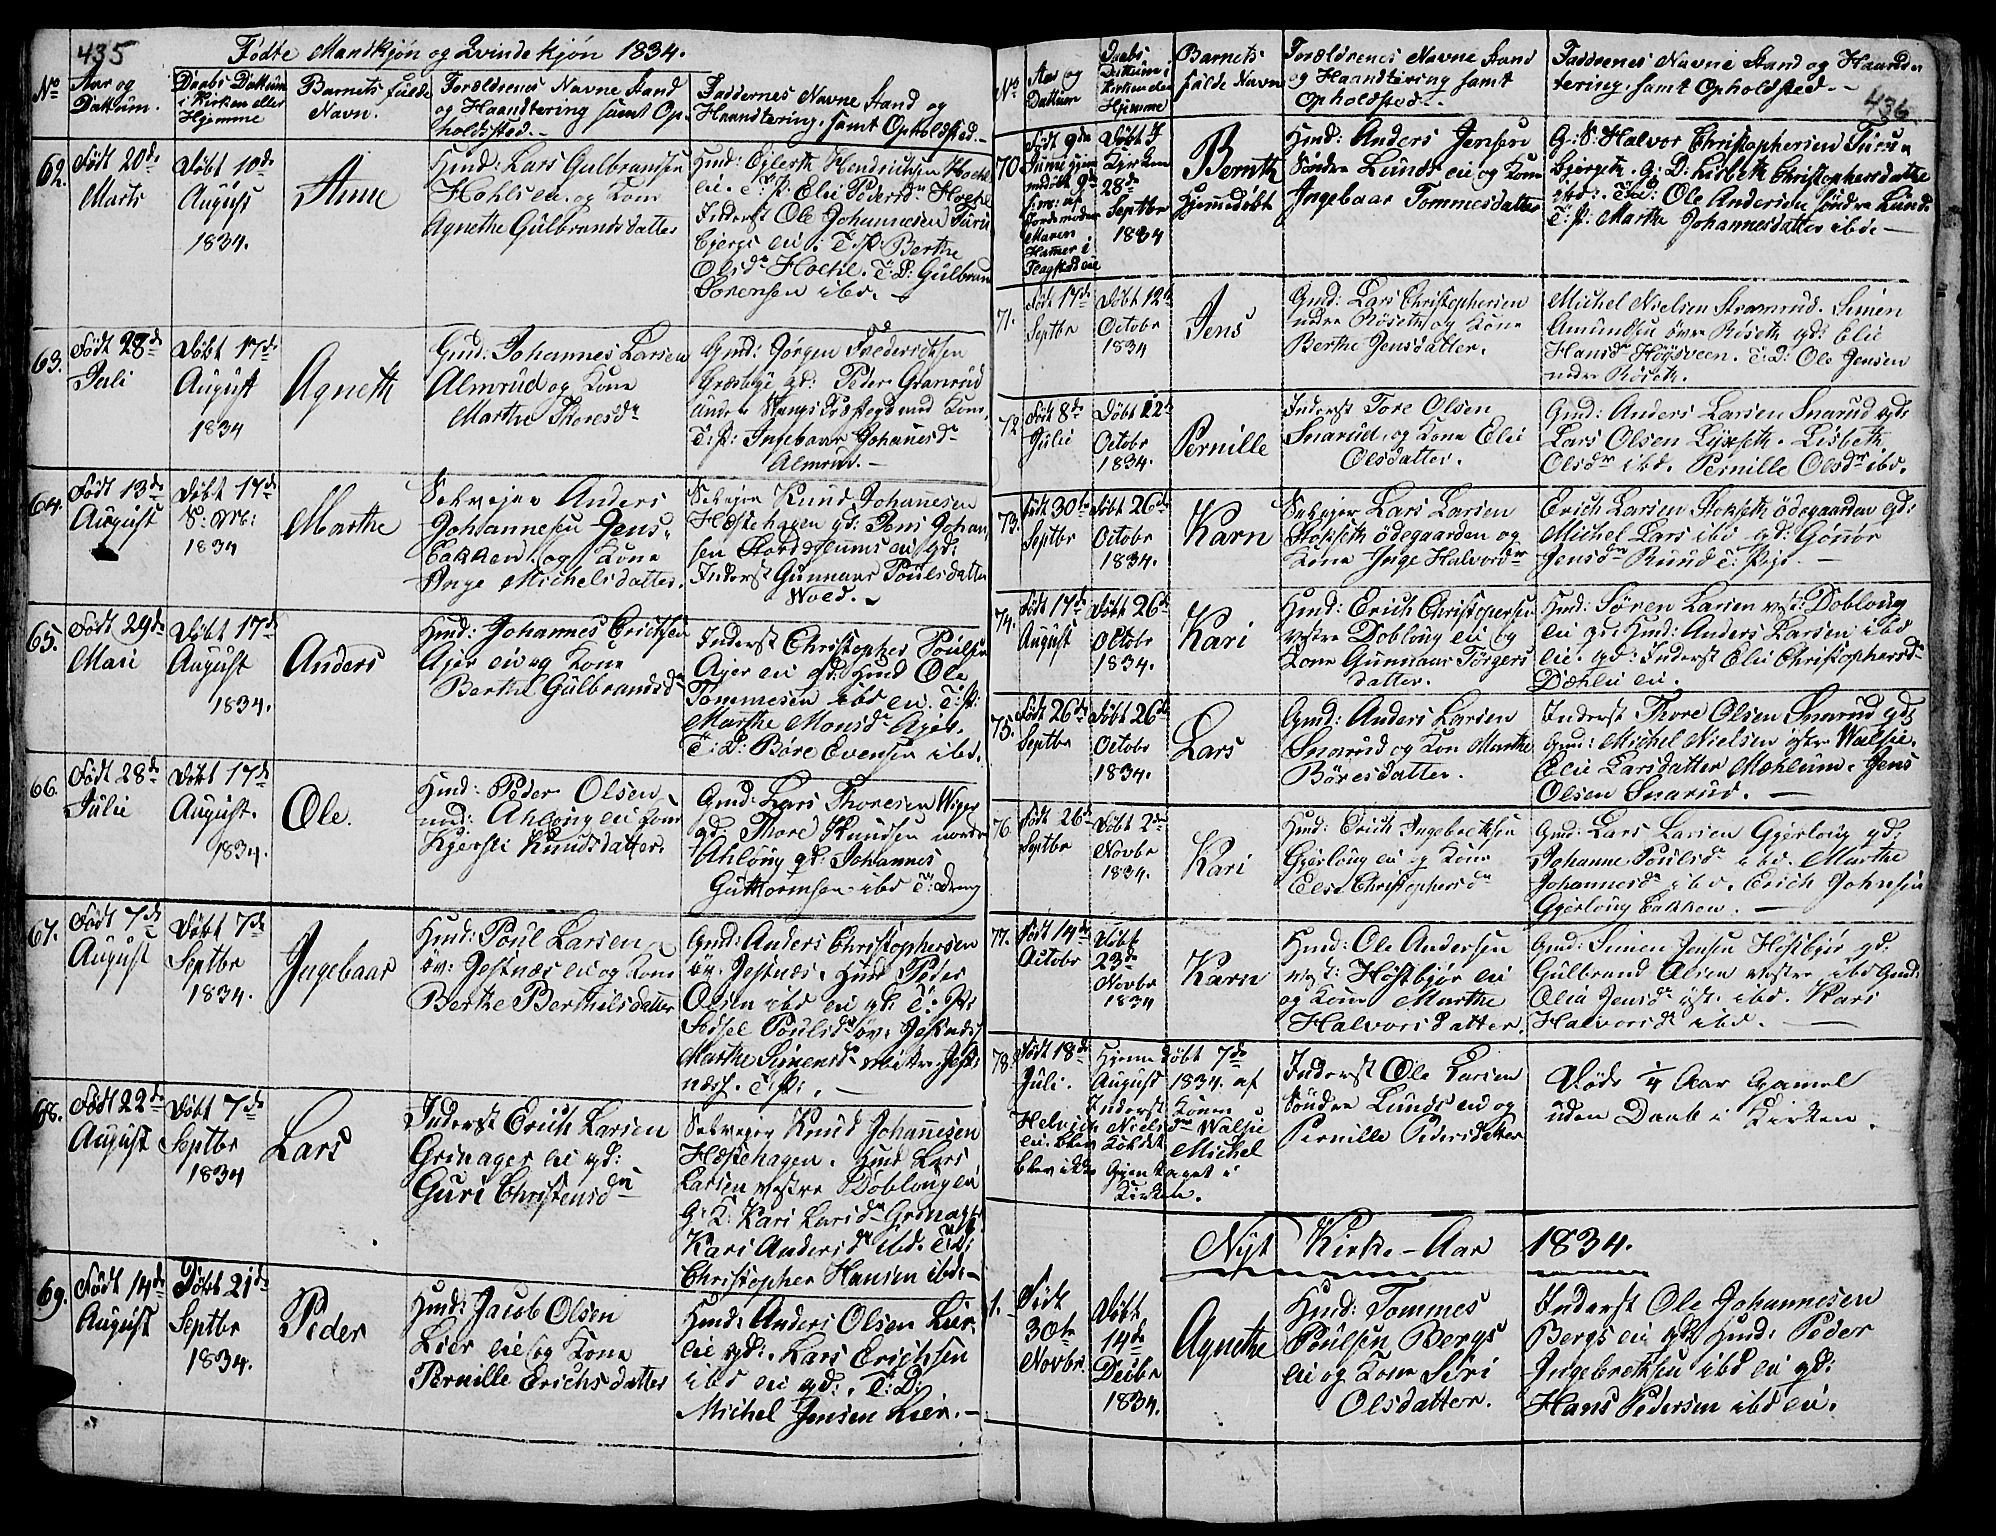 435
Födte Mandkjön og Qvindekjön 1834.
No
Aar og
Dattum.
Daabs Dattum
i Kirken eller
Hjemme
Barnets fulde
Navn.
Forældrenes Navne Stand
og Haandtering samt Op-
holdsted.
Faddernes Navne Stand og
Haandtering, samt Opholdsted.
62.
Födt 20de
Marts
Döbt 10de
August
1834.
Anne
Hmd: Lars Gulbrandsen
Hohls eie og Kone
Agnethe Gulbrandsdatter
Hmd: Ejlerth Hendrichsen Hoehl
eie. T: P: Elie Pedersdr Hoehl
Inderst Ole Johannesen Furu
bjergs eie. T: P: Berthe
Olsdr Hoehl. T: D: Gulbrand
Sörensen ibd.
63.
Födt 28de
Juli
Döbt 17de
August
1834
Agneth
Gmd: Johannes Larsen
Almrud og Kone
Marthe Thoresdr
Gmd: Jörgen Frederichsen
Græsbye gd: Peder Granrud
under Vangs Præstegd med Kone.
T: P: Ingebaar Johanesdr
Almrud.
64.
Födt 13de
August
Döbt 17de
s: M:
1834
Marthe
Selvejer Anders
Johannesen Jens-
bakken og Kone
Inge Michelsdatter.
Selvejer Knud Johannesen
Hæstehagen gd: Jens Johan
sen Stordslums eie gd:
Inderst Gunnaar Poulsdatter
Wold.
65.
Födt 29de
Mai
Döbt 17de
August
1834.
Anders
Hmd: Johannes Erichsen
Ajer eie og Kone
Berthe Gulbrandsdr
Inderst Christopher Poulsen
Ajer eie gd: Hmd Ole
Tommesen ibd eie. T: P:
Marthe Monsdr Ajer.
T: D: Böre Evensen ibd.
66.
Födt 28de
Julie
Döbt 17de
August.
1834.
Ole.
Hmd: Peder Olsen
ned: Ahlöng eie Kone
Kjersti Knudsdatter.
Gmd: Lars Thoresen
gd: Thore Knudsen nordre
Ahlöng gd: Johannes
Guttormsen ibd T: Dreng
67.
Födt 7de
August
Döbt 7de
Septbr
1834.
Ingebaar
Hmd: Poul Larsen
öv: Jesnæs eie og Kone
Berthe Berthilsdatter
Gmd: Anders Christophersen
öv: Jestnæs. Hmd Peder
Olsen ibd eie gd: T: P:
Sidsel Poulsdr öv: Jesnæs
Marthe Simensdr mitre Jest
næss. T: P:.
68.
Födt 22de
August
Döbt 7de
Septbr
1834
Lars
Inderst Erich Larsen
Grinager eie gd:
Guri Christensdr
Selvejer Knud Johannesen
Hæstehagen. Hmd Lars
Larsen vestre Döblong eie
G: K: Kari Larsdr Grinager
Kari Andersdr ibd. T: D:
Christopher Hansen ibd.
69.
Födt 14de
August
Döbt 21de
Septbr
1834.
Peder
Hmd: Jacob Olsen
Lier eie og Kone
Pernille Erichsdatter
Hmd: Anders Olsen Lier
eie gd: Lars Erichsen
ibd eie gd:. T: D:
Michel Jensen Lier.
436.
No
Aar og
Dattum
Daabs
Dattum i
Kirken eller
Hjemme
Barnets
fulde Navn
Forældrenes Navne Stand
og Haandtering samt
Opholdsted.
Faddrenes Navne Stand og Haand-
tering, samt Opholdsted.
70
Födt 9de
Juni hjem
medöbt 9de
s: m: af
Jordemoder
Maren
Hamer i
eie
Döbt i
Kirken
28de
Septbr
1834
Bernth
hjemedöbt
Hmd: Anders Jensen
Söndre Lunds eie og Kone
Ingebaar Tommesdatter
G: S: Halvor Christophersen Furu-
bjergeth. G: D: Lisbeth Christophersdatter
ibd. T: D: Ole Andersen söndre Lund.
T: P: Marthe Johannesdatter ibd.
71.
Födt 17de
Septbr
Döbt 12te
Octobr
1834
Jens
Gmd: Lars Christophersen
nedre Röseth og Kone
Berthe Jensdatter.
Michel Nielsen Strömrud. Simen
Amundsen övre Röseth gd: Elie
Hansdr Höysveen. T: D: Ole Jensen
nedre Röseth.
72
Födt 8de
Julie
Döbt 12te
Octobr
1834.
Pernille
Inderst Tore Olsen
Snarud, og Kone Elie
Olsdatter.
Gmd: Anders Larsen Snarud gd:
Lars Olsen Lysseth. Lisbeth
Olsdr ibd. Pernille Olsdr ibd.
73.
Födt 30te
Septbr
Döbt 26de
Octobr
1834.
Karn
Selvejer Lars Larsen
Stokseth ödegaarden og
Kone Inge Halvorsdr
Erich Larsen Stokseth ödegaarden gd:
Michel Lars ibd gd: Gönnör
Jensdr Rund T: Pige.
74.
Födt 17de
August
Döbt 26de
Octobr
1834.
Kari
Hmd: Erich Christophersen
vestre Doblong eie og
Kone Gunnaar Törgers
datter.
Hmd: Sören Larsen vest: Doblong
eie gd: Hmd: Anders Larsen ibd
eie. gd: Inderst Elie Christophersdr
Dæhlie eie.
75.
Födt 26de
Septbr
Döbt 26de
Octobr
1834.
Lars
Gmd: Anders Larsen
Snarud og Kone Marthe
Böresdatter.
Inderst Thore Olsen Snarud gd:
Gmd: Michel Nielsen östre Walsie.
Elie Larsdatter Mæhlum. Jens
Olsen Snarud.
76.
Födt 26de
Septbr
Döbt 2de
Novbr
1834.
Kari
Hmd: Erich Ingebrethsen
Gjerlöug eie og Kone
Else Christophersdr
Gmd: Lars Larsen Gjerlöug gd:
Johanne Poulsdr ibd. Marthe
Johannesdr ibd. Erich Johnsen
Gjerlöug bakken.
77.
Födt 14de
Octobr
Döbt
23de
Novbr
1834
Karn
Hmd: Ole Andersen
vest: Höstbjör eie
og Kone Marthe
Halvorsdatter.
Gmd: Simen Jensen Höstbjör gd:
Gulbrand Olsen vestre ibd Gmd:
Olia Jensdr öst. ibd. Kari
Halvorsdr ibd.
78.
Födt 18de
Juli.
Hjemedöbt 7de
August 1834. af
Inderst Konen
Helvich Nielsdr Walsie
eie. blev Kaldet Michel
blev ikke Igjentaget i
Kirken.
Inderst Ole Larsen
Söndre Lunds eie og
Pernille Pedersdatter
Döde 1/4 Aar Gamel
uden Daab i Kirken.
Nyt Kirke-Aar 1834.
1.
Födt
30te
Novbr
Döbt
14de
Decbr
1834.
Agnethe
Hmd: Tommes
Poulsen Bergs
eie og Kone Siri
Olsdatter.
Inderst Ole Johannesen
Bergs eie gd: Hmd: Peder
Ingebrethsen ibd eie gd:
Hans Pedersen ibd eie.